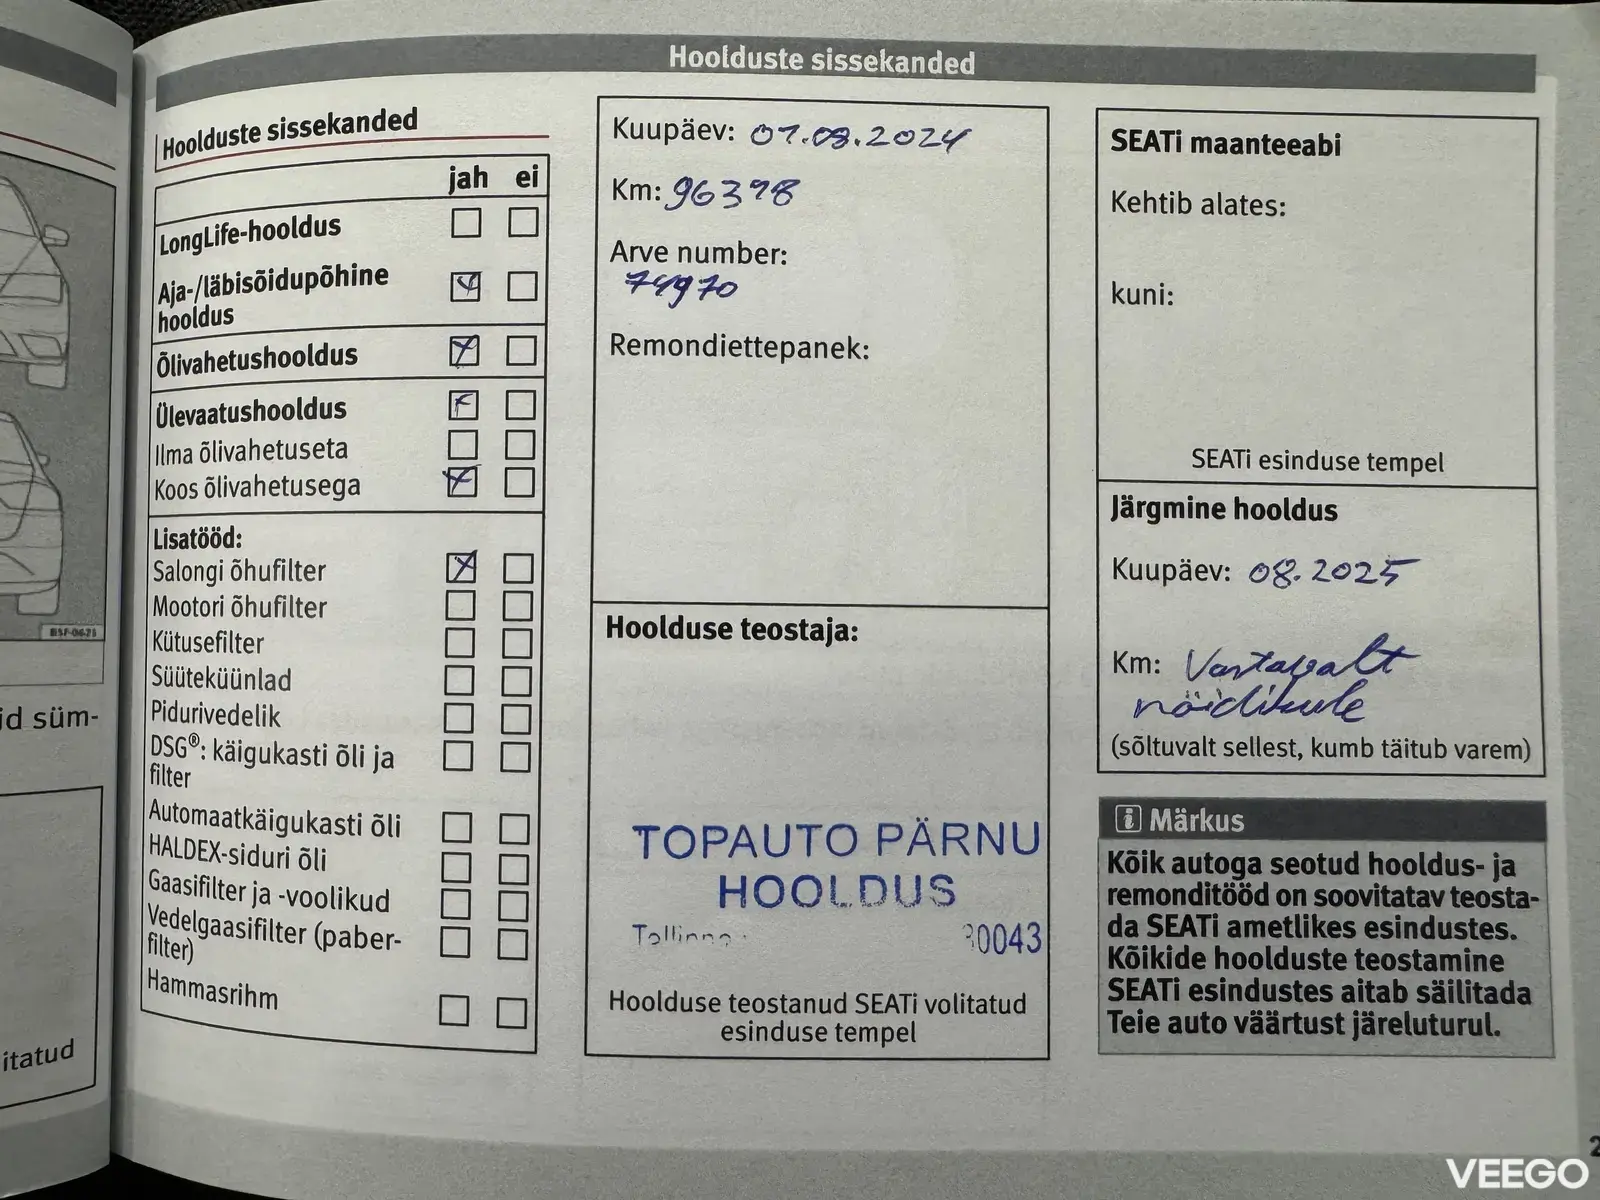 Hoolduste sissekanded
Hoolduste sissekanded
jah ei
LongLife-hooldus
Aja-/läbisõidupõhine
hooldus
Õlivahetushooldus
Ülevaatushooldus
Ilma õlivahetuseta
Koos õlivahetusega
Lisatööd:
Salongi õhufilter
Mootori õhufilter
Kütusefilter
Süüteküünlad
Pidurivedelik
DSG®: käigukasti õli ja
filter
Automaatkäigukasti õli
HALDEX-siduri õli
Gaasifilter ja -voolikud
Vedelgaasifilter (paber-
filter)
Hammasrihm
Kuupäev: 07.08.2024
Km: 96398
Arve number:
74970
Remondiettepanek:
Hoolduse teostaja:
TOPAUTO PÄRNU
HOOLDUS
0043
Hoolduse teostanud SEATi volitatud
esinduse tempel
SEATi maanteeabi
Kehtib alates:
kuni:
SEATi esinduse tempel
Järgmine hooldus
Kuupäev: 08.2025
Km: Vastavalt
näidikule
(sõltuvalt sellest, kumb täitub varem)
Märkus
Kõik autoga seotud hooldus- ja
remonditööd on soovitatav teosta-
da SEATi ametlikes esindustes.
Kõikide hoolduste teostamine
SEATi esindustes aitab säilitada
Teie auto väärtust järeluturul.
id süm-
itatud
VEEGO